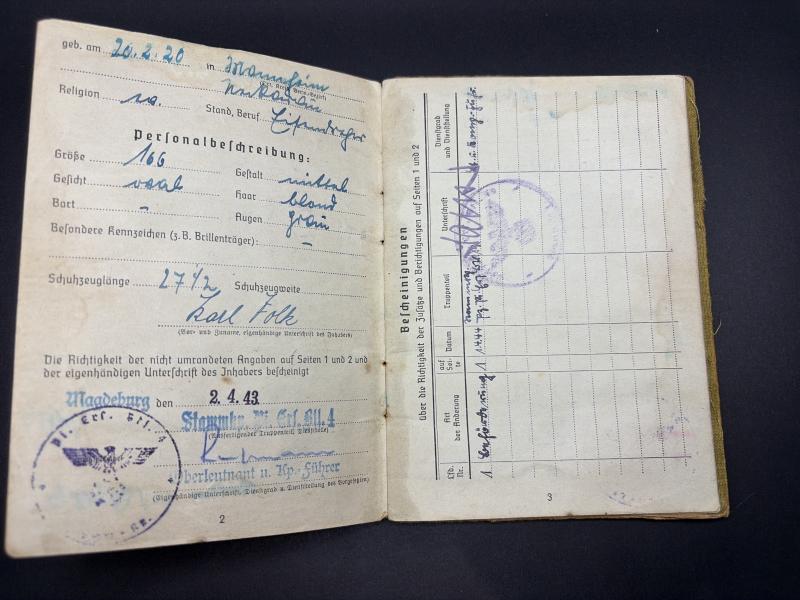 geb. am 20.2.20 in Mannheim
Neckarau
Religion ev. Stand, Beruf Eisendreher
Personalbeschreibung:
Größe 166 Gestalt mittel
Gesicht oval Haar blond
Bart - Augen grau
Besondere Kennzeichen (z.B. Brillenträger): -
Schuhzeuglänge 27 1/2 Schuhzeugweite
Karl Volk
(Vor- und Zuname, eigenhändige Unterschrift des Inhabers)
Die Richtigkeit der nicht umrandeten Angaben auf Seiten 1 und 2 und
der eigenhändigen Unterschrift des Inhabers bescheinigt
Magdeburg den 2. 4. 43
Stammkp. Pi. Ers. Btl. 4
(Ausfertigender Truppenteil, Dienststelle)
Oberleutnant u. Kp.-Führer
(Eigenhändige Unterschrift, Dienstgrad u. Dienststellung des Vorgesetzten)
Pi. Ers. Btl. 4
2
Bescheinigungen
über die Richtigkeit der Zusätze und Berichtigungen auf Seiten 1 und 2
Lfd. Nr. Art der Änderung auf Seite Datum Truppenteil Unterschrift Dienstgrad und Dienststellung
1 Beförderung 1 1.4.44
3